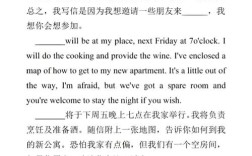 总之，我写信是因为我想邀请一些朋友来_____，我
想你会想参加。
_______will be at my place, next Friday at 7o'clock. I
will do the cooking and provide the wine. I've enclosed a
map of how to get to my new apartment. It's a little out of
the way, I'm afraid, but we've got a spare room and
you're welcome to stay the night if you wish.
_______将于下周五晚上七点在我家举行。我将负责
烹饪及准备酒。随信附上一张地图，告诉你如何到我
的新公寓，恐怕我家有点偏，但我们有一个空房间，